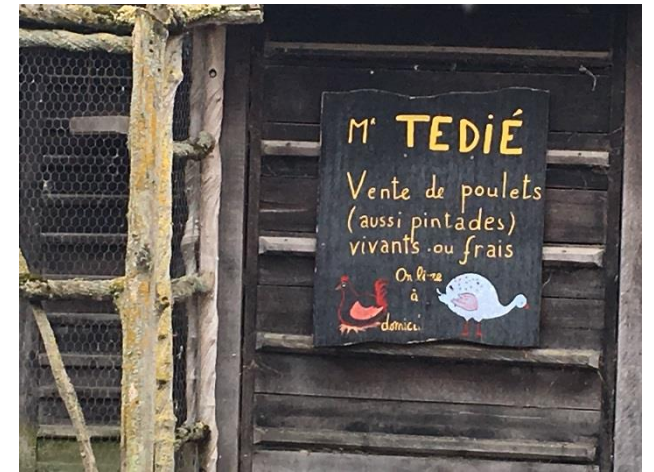 Mr TEDIÉ
Vente de poulets
(aussi pintades)
vivants . ou frais
On livre
à